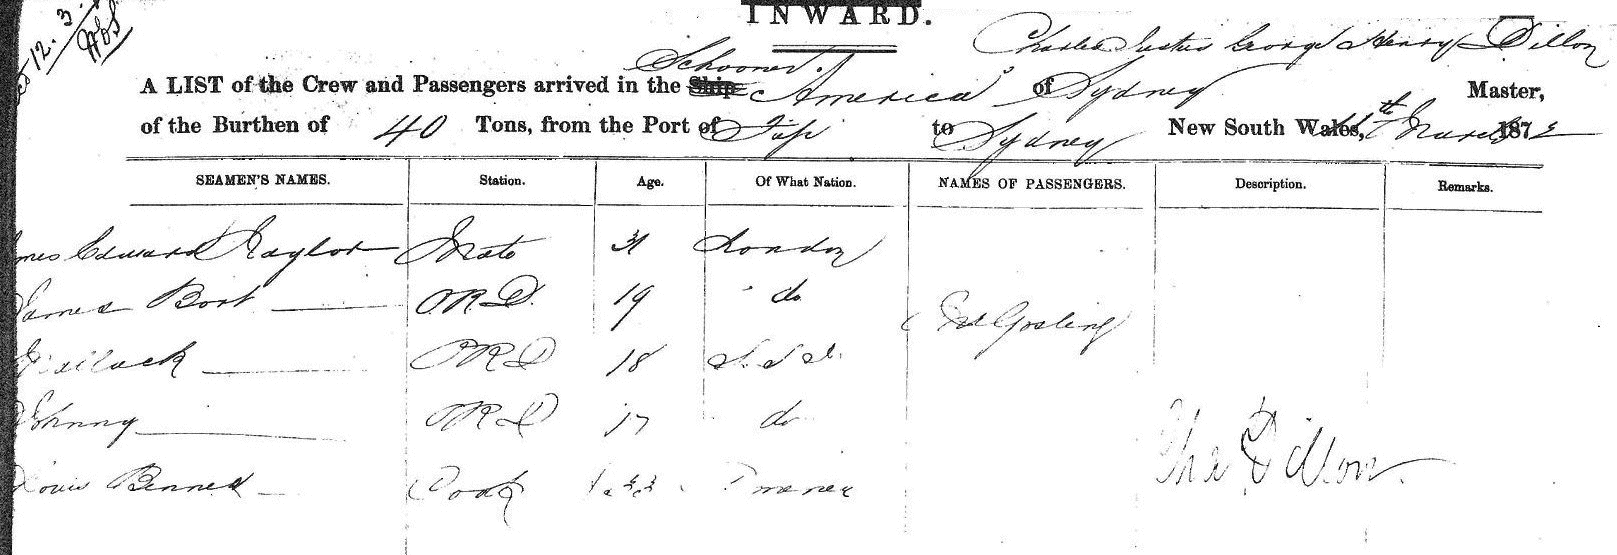 12. 3.
INWARD.
Charles Justus George Henry Dillon
Schooner
A LIST of the Crew and Passengers arrived in the Ship "America" of Sydney Master,
of the Burthen of 40 Tons, from the Port of Fiji to Sydney New South Wales, th March 187
SEAMEN'S NAMES. Station. Age. Of What Nation. NAMES OF PASSENGERS. Description. Remarks.
Edward Naylor Mate 31 London
James Bort ORD. 19 do
ORD 18
Gosling
Johnny ORD 17 do
Louis Bennet Cook
Cha Dillon